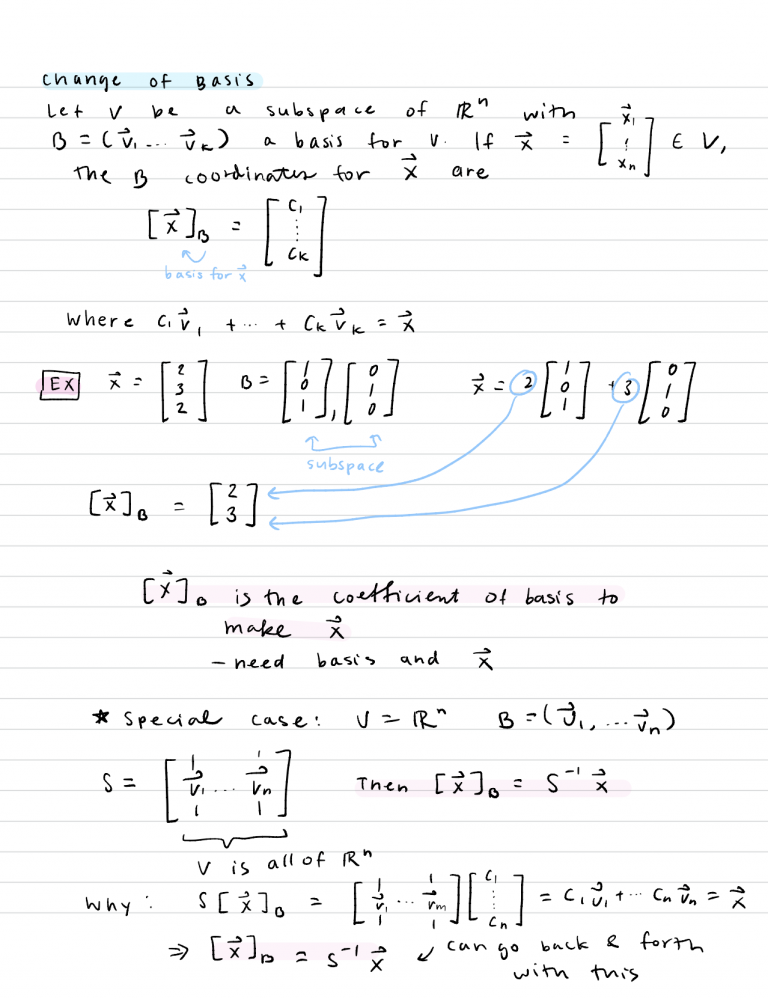 Change of Basis
Let V be a subspace of ℝⁿ with
B = (v⃗₁ ... v⃗ₖ) a basis for V. If x⃗ = [x⃗₁ ⋮ xₙ] ∈ V,
the B coordinates for x⃗ are
[x⃗]_B = [c₁ ⋮ cₖ]
basis for x⃗
where c₁v⃗₁ + ... + cₖv⃗ₖ = x⃗
EX x⃗ = [2 3 2] B = [1 0 1], [0 1 0] x⃗ = 2 [1 0 1] + 3 [0 1 0]
subspace
[x⃗]_B = [2 3]
[x⃗]_B is the coefficient of basis to
make x⃗
- need basis and x⃗
* special case: V = ℝⁿ B = (v⃗₁, ... v⃗ₙ)
S = [v⃗₁ ... v⃗ₙ] Then [x⃗]_B = S⁻¹ x⃗
V is all of ℝⁿ
why: S[x⃗]_B = [v⃗₁ ... v⃗ₘ][c₁ ⋮ cₙ] = c₁v⃗₁ + ... cₙv⃗ₙ = x⃗
⇒ [x⃗]_B = S⁻¹ x⃗ ↙ can go back & forth
with this